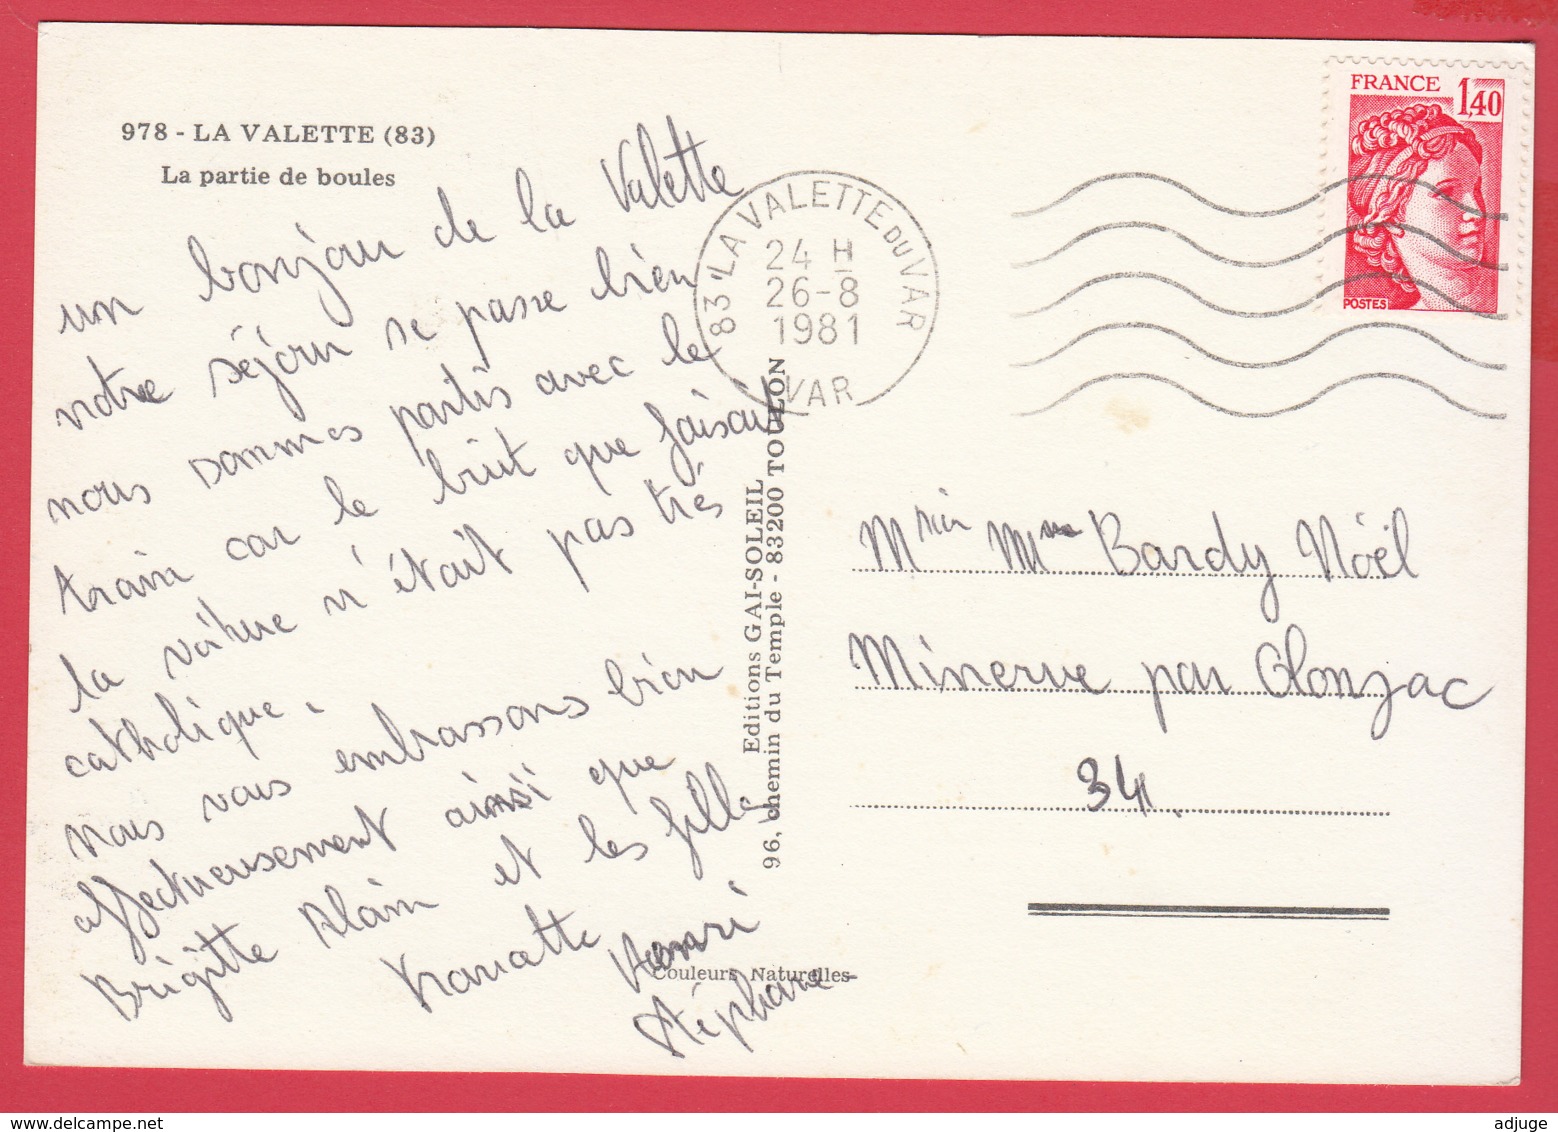 978 - LA VALETTE (83)
La partie de boules
un bonjour de la Valette
notre séjour se passe bien
nous sommes partis avec le
train car le bruit que faisait
la voiture n'était pas très
catholique.
nous vous embrassons bien
affectueusement ainsi que
Brigitte Alain et les filles
Henri
Stéphane
Couleurs Naturelles
Editions GAI-SOLEIL
96, chemin du Temple - 83200 TOULON
83 LA VALETTE DU VAR
24 H
26-8
1981
VAR
FRANCE 1,40
POSTES
Mme Bardy Nöel
Minerve par Olonzac
34
adjuge - delcampe.net